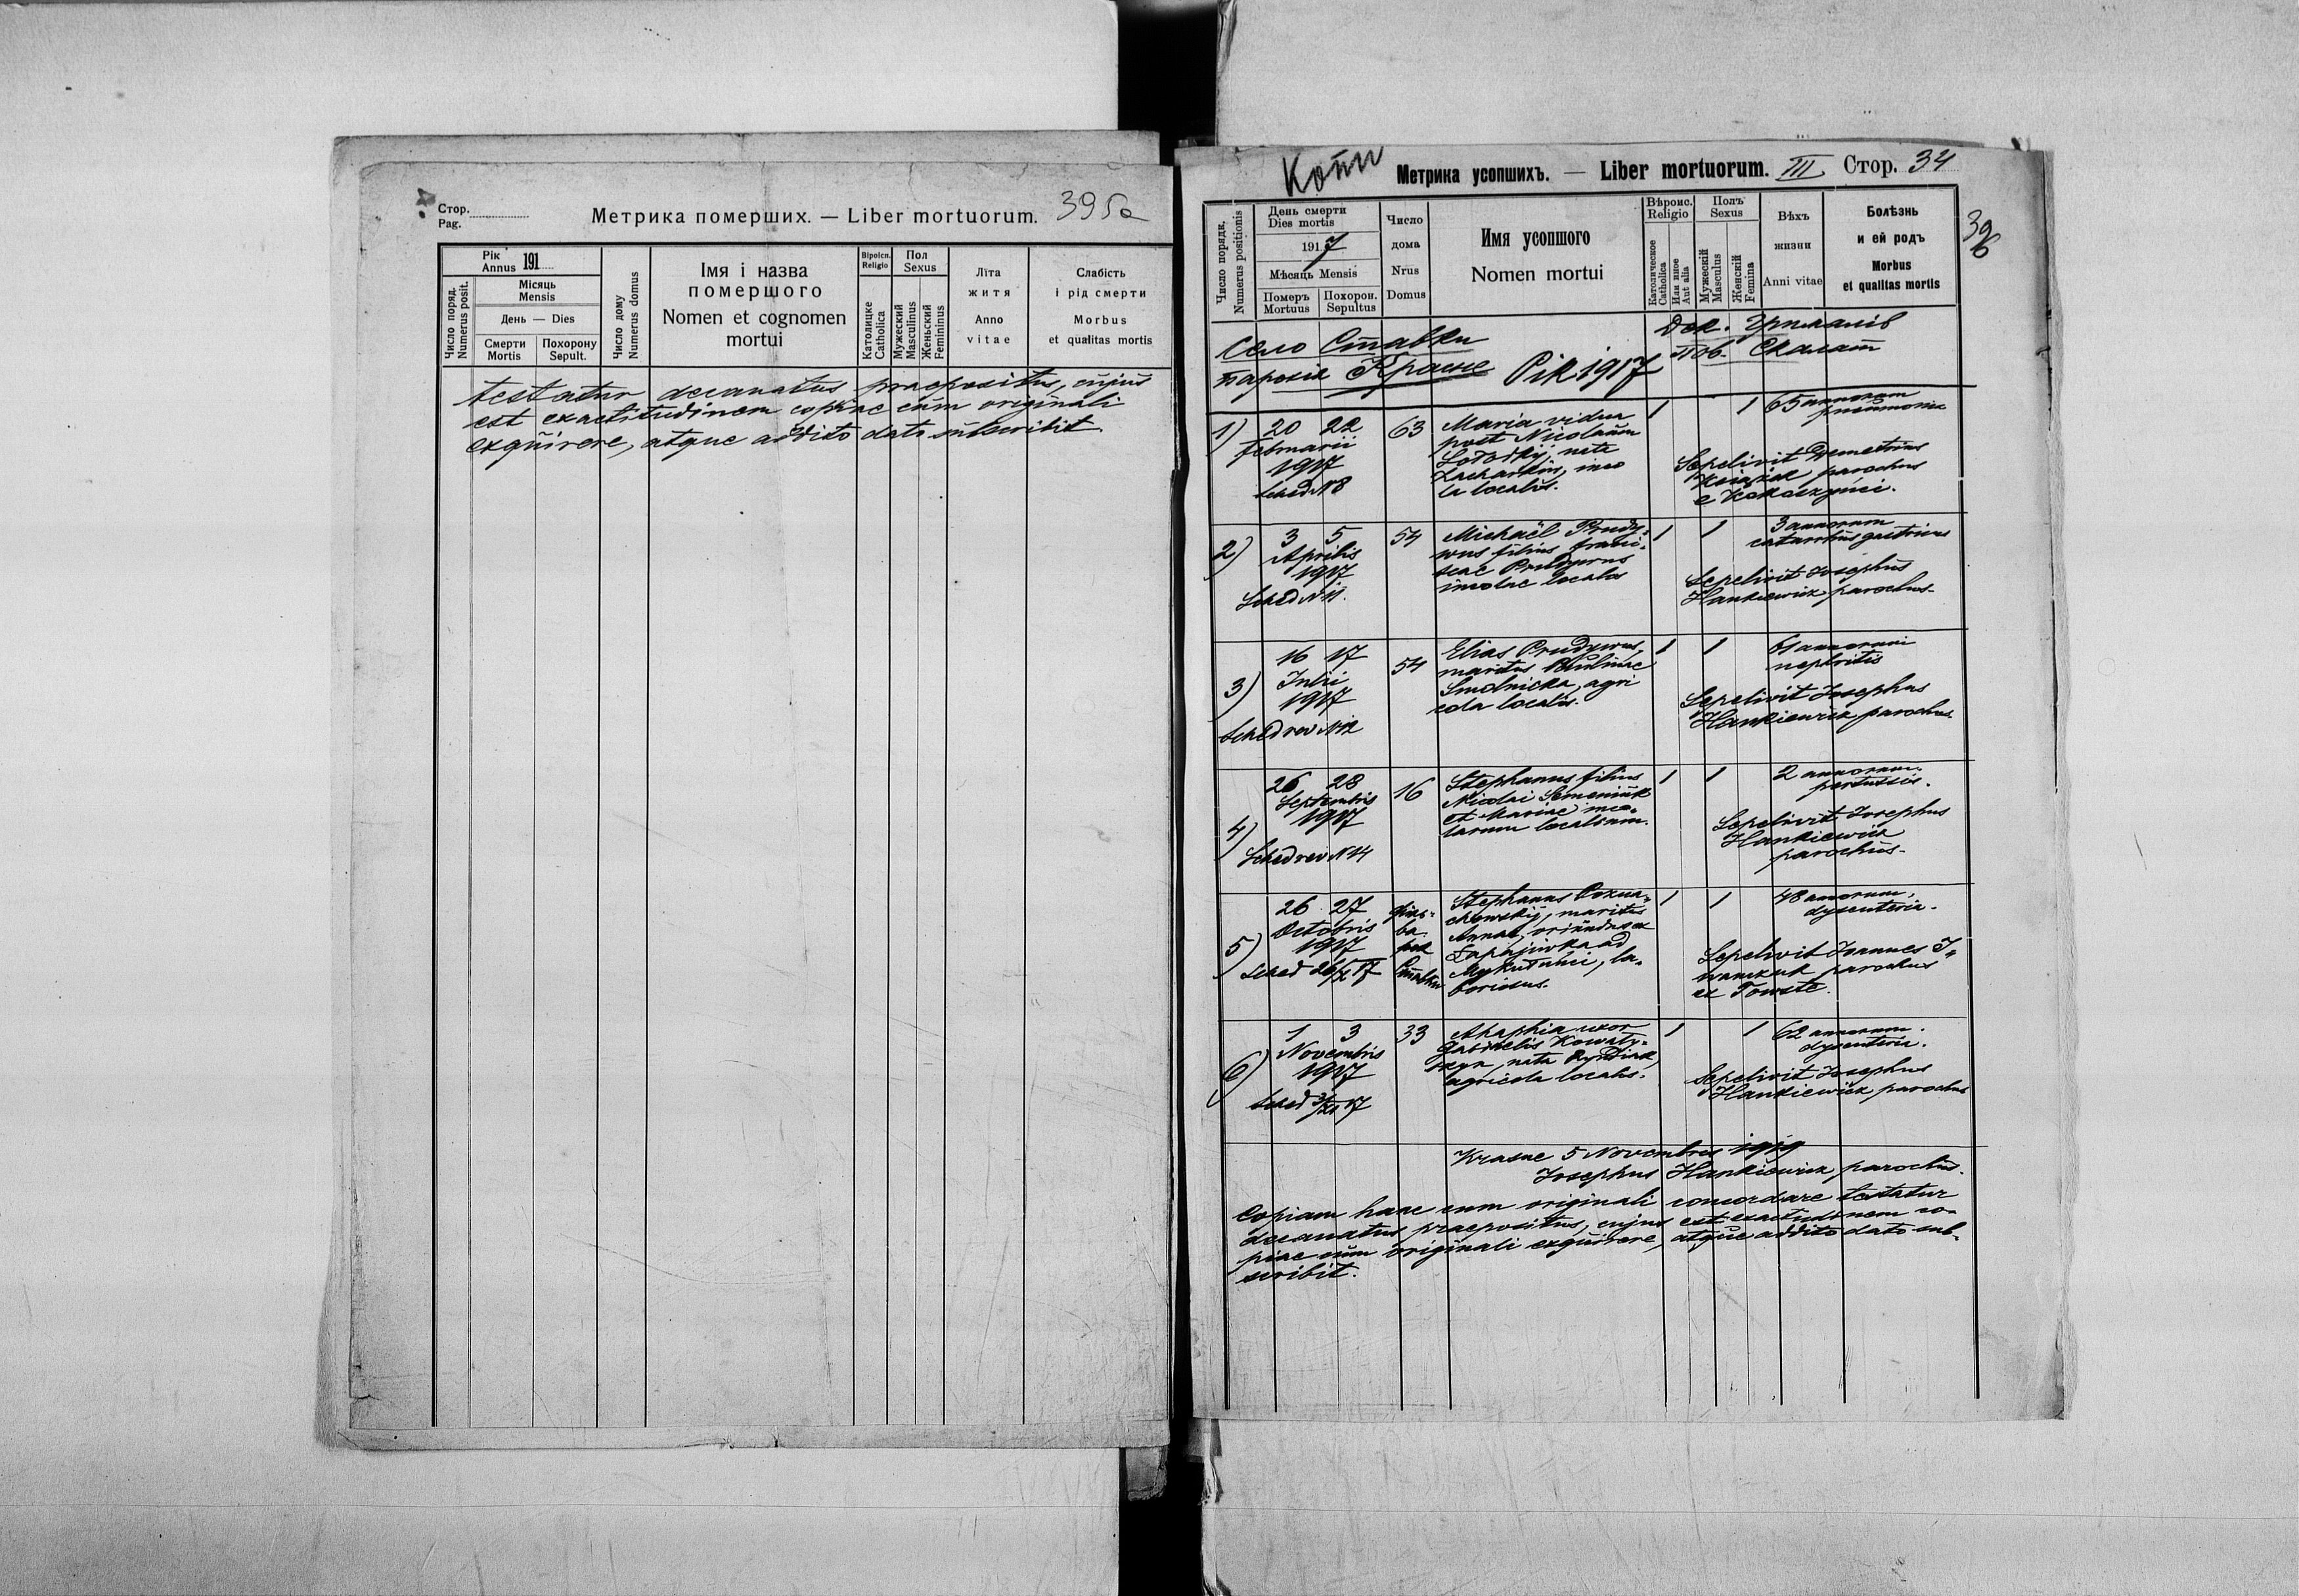 Стор.
Pag.
Метрика померших. — Liber mortuorum.
395a
Рік
Annus 191
Число поряд.
Numerus posit.
Місяць
Mensis
День — Dies
Смерти
Mortis
Похорону
Sepult.
Число дому
Numerus domus
Імя і назва
помершого
Nomen et cognomen
mortui
Віроісп.
Religio
Католицке
Catholica
Пол
Sexus
Мужеский
Masculinus
Женьский
Femininus
Літа
житя
Anno
vitae
Слабість
і рід смерти
Morbus
et qualitas mortis
testatur decanatus praepositus, cujus
est exactitudinem copiae cum originali
exquirere, atque addito dato subscribit.
Метрика усопшихъ. — Liber mortuorum. III Стор. 34
396
Число порядк.
Numerus positionis
День смерти
Dies mortis
1917
Мѣсяць Mensis
Померъ
Mortuus
Похорон.
Sepultus
Число
дома
Nrus
Domus
Имя усопшого
Nomen mortui
Вѣроис.
Religio
Католическое
Catholica
Или иное
Aut alia
Полъ
Sexus
Мужескій
Masculus
Женскій
Femina
Вѣхъ
жизни
Anni vitae
Болѣзнь
и ей родъ
Morbus
et qualitas mortis
село Ставки
парохія Красне Рік 1917
Дек. Грималів
Пов. Скалат
1) 20 22 63 Maria vidua 1 1 65 annorum
Februarii post Nicolaum pneumonia
1917 nata
Sched N8 la localis.
Sepelivit Demetrius
parochus
2) 3 5 54 Michaël Prudy- 1 1 3 annorum
Aprilis wus filius franci- catarrhus gastricus
1917 scae Prudywus
Sched N 11. incolae localis
Sepelivit Josephus
Hankiewicz parochus.
3) 16 17 54 Elias Prudywus, 1 1 61 annorum
Julii maritus Paulinae nephritis
1917 Smolnicka, agri
cola localis.
Sched rev N12
Sepelivit Josephus
Hankiewicz parochus.
4) 26 28 16 Stephanus filius 1 1 2 annorum.
Septembris Nicolai Semeniuk pertussis.
1917 et Mariae inco-
larum localium.
Sched rev N 14
Sepelivit Josephus
Hankiewicz
parochus.
5) 26 27 Stephanus 1 1 48 annorum,
Octobris maritus dysenteria.
1917 Annae, oriundus ex
Sched 26/X 17 ad
la-
boriosus.
Sepelivit Joannes
parochus
ex Touste.
6) 1 3 33 Ahaphia uxor 1 1 62 annorum.
Novembris Gabrielis Kowaly- dysenteria.
1917 szyn, nata
agricola localis.
Sched 3/XI 17
Sepelivit Josephus
Hankiewicz parochus
Krasne 5 Novembris 1919
Josephus Hankiewicz parochus.
Copiam hanc cum originali concordare testatur
decanatus praepositus, cujus est exactitudinem co-
piae cum originali exquirere, atque addito dato sub-
scribit.